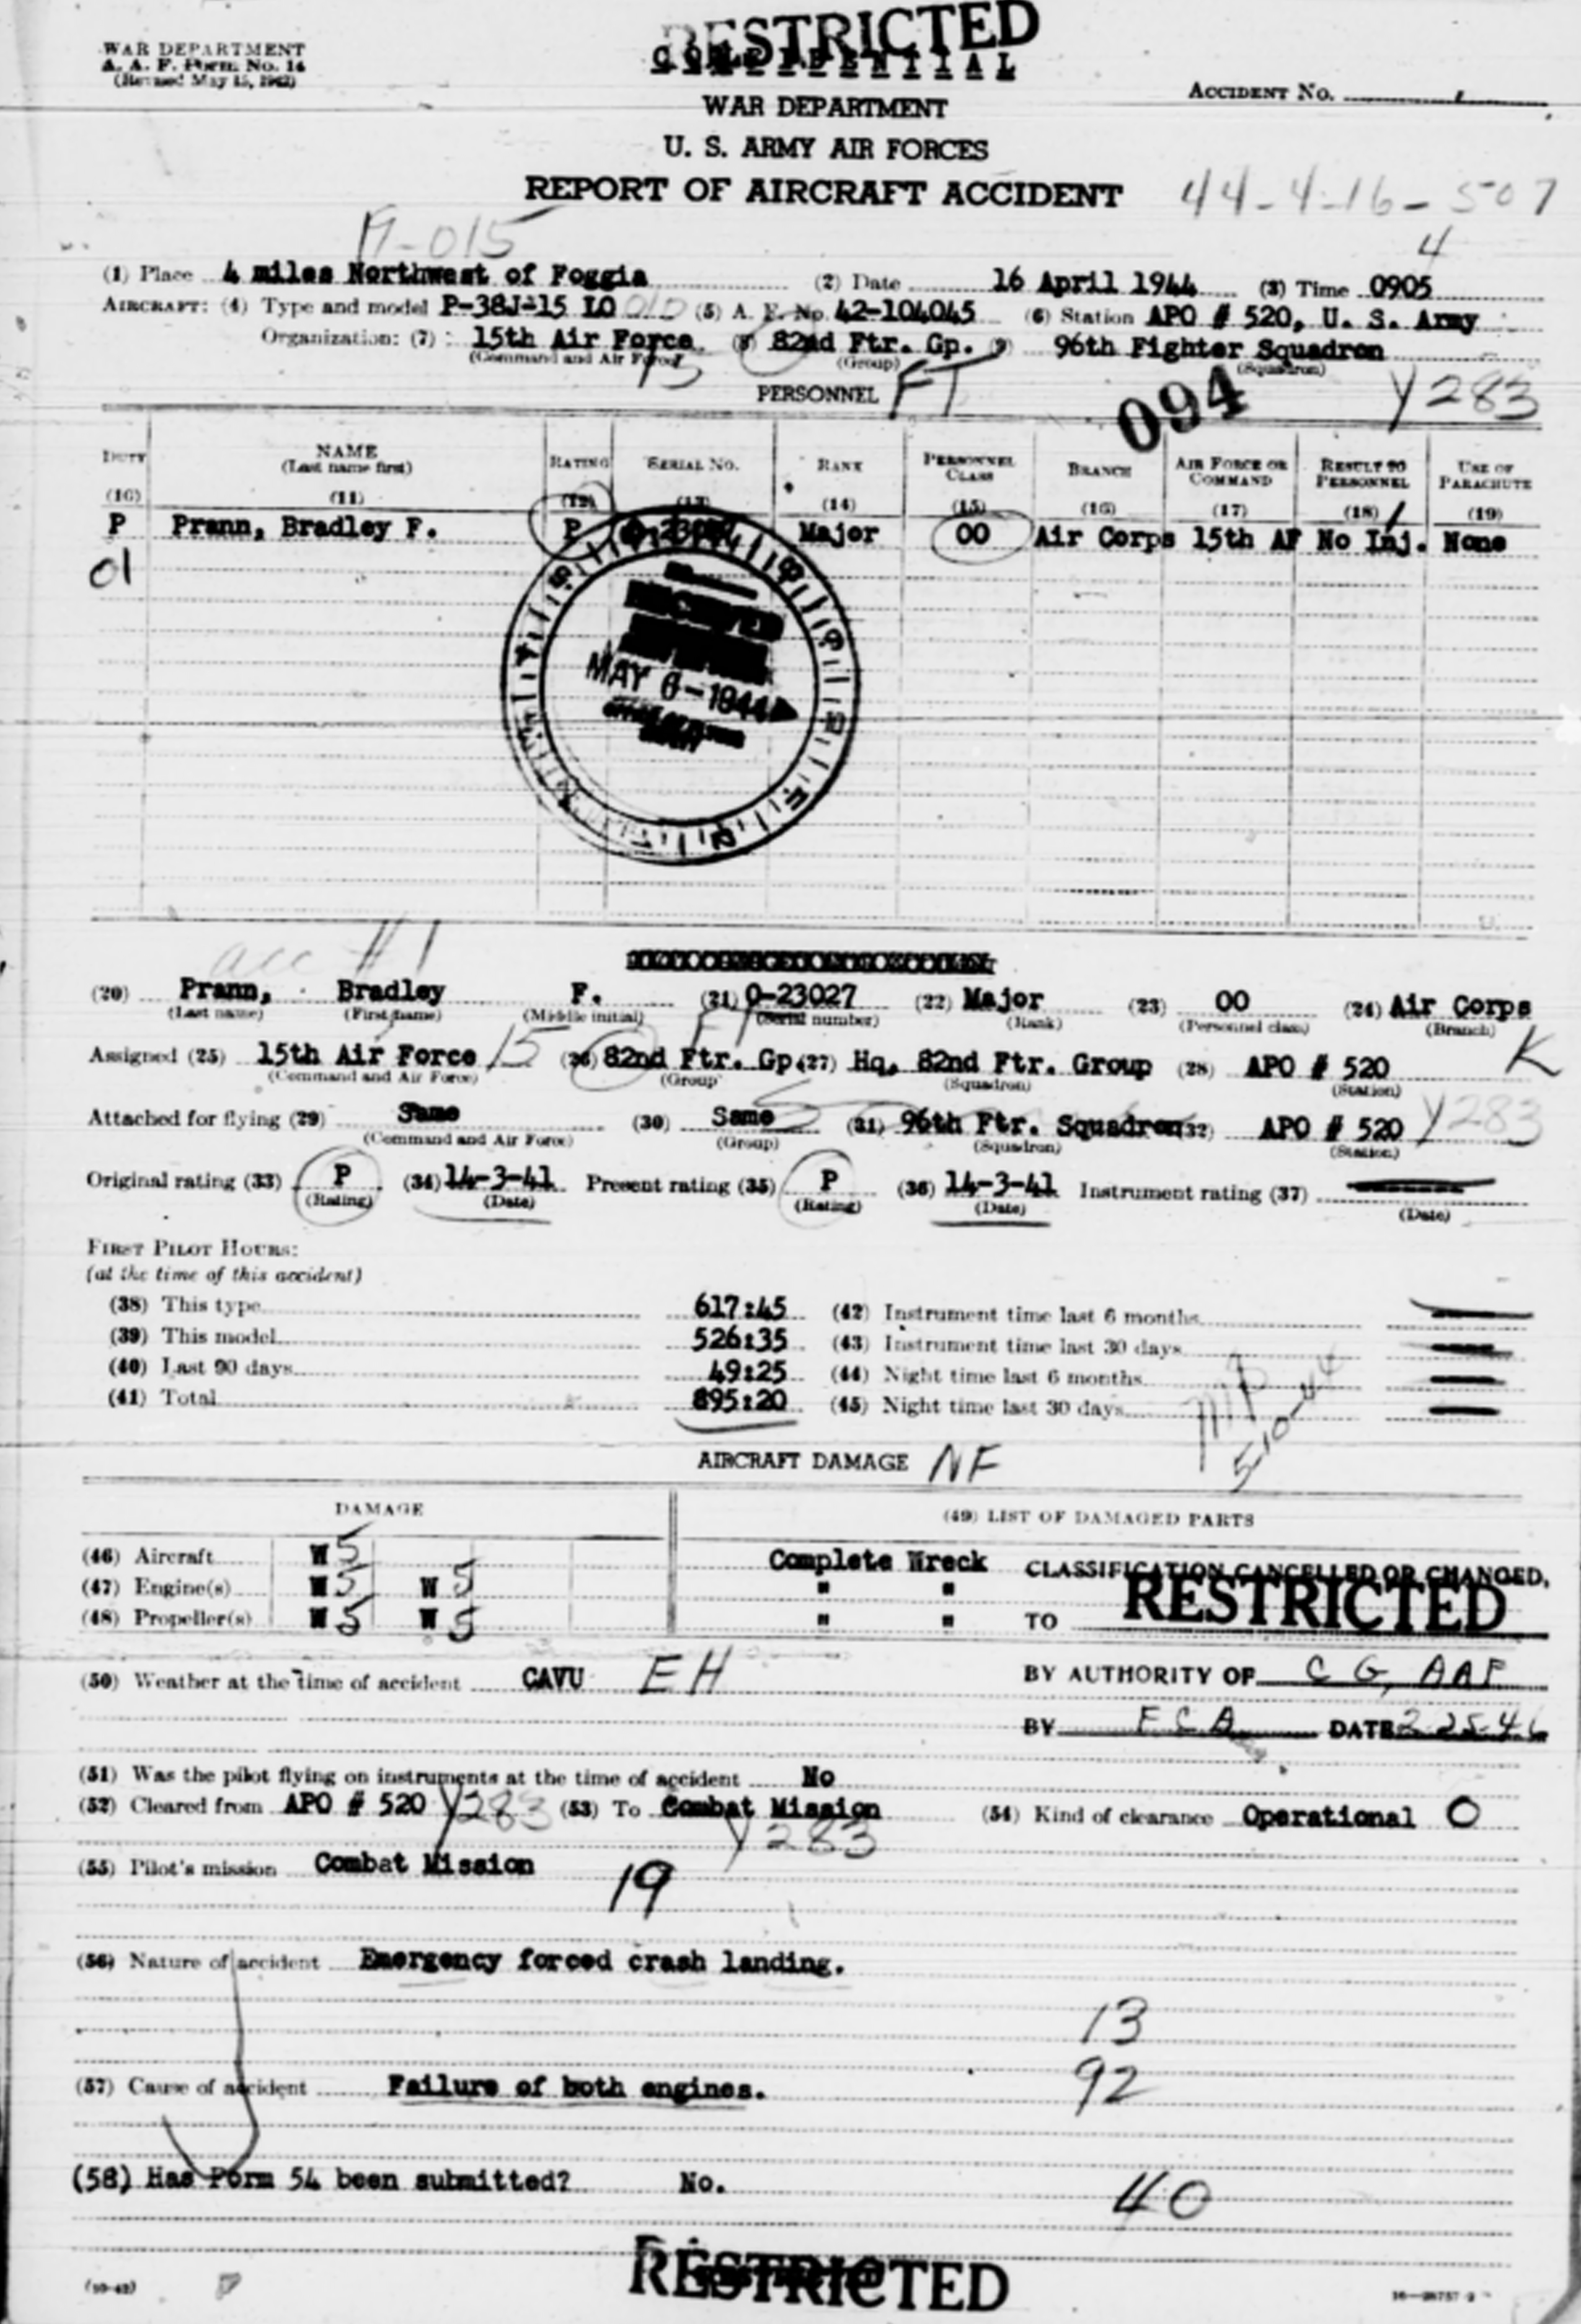 RESTRICTED
CONFIDENTIAL
WAR DEPARTMENT
A. A. F. Form No. 14
(Revised May 15, 1942)
ACCIDENT No.
WAR DEPARTMENT
U. S. ARMY AIR FORCES
REPORT OF AIRCRAFT ACCIDENT
44-4-16-507
4
(1) Place 4 miles Northwest of Foggia (2) Date 16 April 1944 (3) Time 0905
AIRCRAFT: (4) Type and model P-38J-15 LO (5) A. F. No. 42-104045 (6) Station APO # 520, U. S. Army
Organization: (7) 15th Air Force (8) 82nd Ftr. Gp. (9) 96th Fighter Squadron
(Command and Air Force) (Group) (Squadron)
15
PERSONNEL FT 094 Y283
DUTY NAME (Last name first) RATING SERIAL No. RANK PERSONNEL CLASS BRANCH AIR FORCE OR COMMAND RESULT TO PERSONNEL USE OF PARACHUTE
(10) (11) (12) (13) (14) (15) (16) (17) (18) (19)
P Prann, Bradley F. P Major OO Air Corps 15th AF No Inj. None
01
MAY 6-1944
acc #1
(20) Prann, Bradley F. (21) O-23027 (22) Major (23) OO (24) Air Corps
(Last name) (First name) (Middle initial) (Serial number) (Rank) (Personnel class) (Branch)
Assigned (25) 15th Air Force 15 (26) 82nd Ftr. Gp. (27) Hq. 82nd Ftr. Group (28) APO # 520 K
(Command and Air Force) (Group (Squadron) (Station)
Attached for flying (29) Same (30) Same (31) 96th Ftr. Squadron (32) APO # 520 Y283
(Command and Air Force) (Group) (Squadron) (Station)
Original rating (33) P (34) 14-3-41 Present rating (35) P (36) 14-3-41 Instrument rating (37)
(Rating) (Date) (Rating) (Date) (Date)
FIRST PILOT HOURS:
(at the time of this accident)
(38) This type 617:45 (42) Instrument time last 6 months
(39) This model 526:35 (43) Instrument time last 30 days
(40) Last 90 days 49:25 (44) Night time last 6 months
(41) Total 895:20 (45) Night time last 30 days
5-10-44
AIRCRAFT DAMAGE NF
DAMAGE (49) LIST OF DAMAGED PARTS
(46) Aircraft W 5 Complete Wreck CLASSIFICATION CANCELLED OR CHANGED,
(47) Engine(s) W 5 W 5 " "
(48) Propeller(s) W 5 W 5 " " TO RESTRICTED
(50) Weather at the time of accident CAVU EH BY AUTHORITY OF C G, AAF
BY F C A DATE 2-25-46
(51) Was the pilot flying on instruments at the time of accident No
(52) Cleared from APO # 520 Y283 (53) To Combat Mission (54) Kind of clearance Operational O
Y283
(55) Pilot's mission Combat Mission
19
(56) Nature of accident Emergency forced crash landing.
13
92
(57) Cause of accident Failure of both engines.
(58) Has Form 54 been submitted? No.
40
RESTRICTED